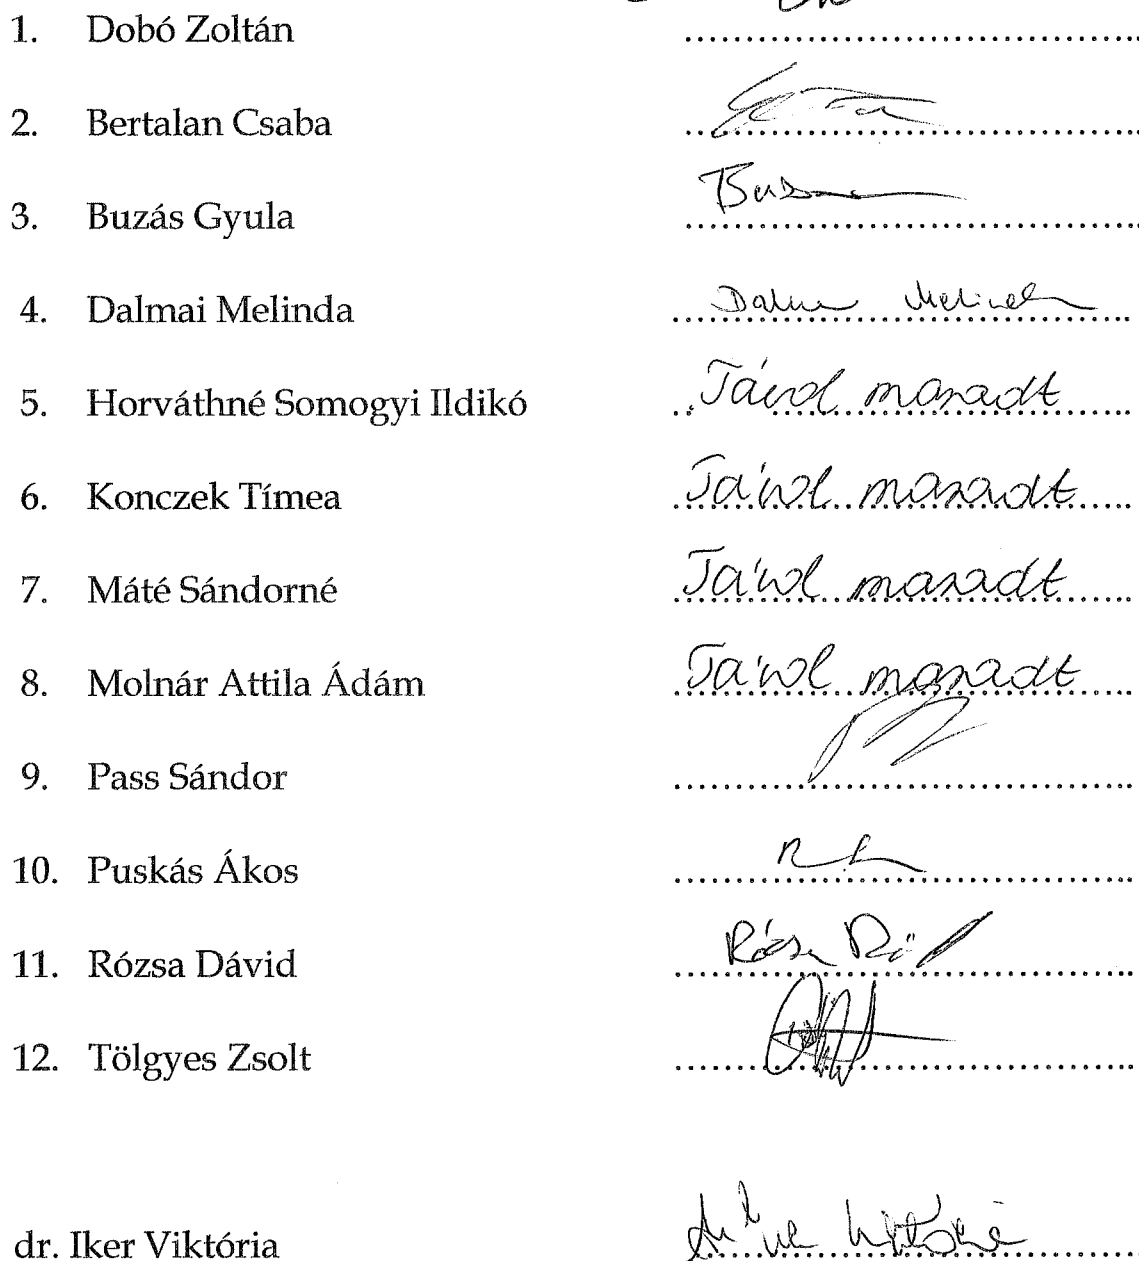 1. Dobó Zoltán ..............................
2. Bertalan Csaba ..............................
3. Buzás Gyula ..............................
4. Dalmai Melinda ..............................
5. Horváthné Somogyi Ildikó Távol maradt
6. Konczek Tímea Távol maradt
7. Máté Sándorné Távol maradt
8. Molnár Attila Ádám Távol maradt
9. Pass Sándor ..............................
10. Puskás Ákos ..............................
11. Rózsa Dávid ..............................
12. Tölgyes Zsolt ..............................
dr. Iker Viktória ..............................